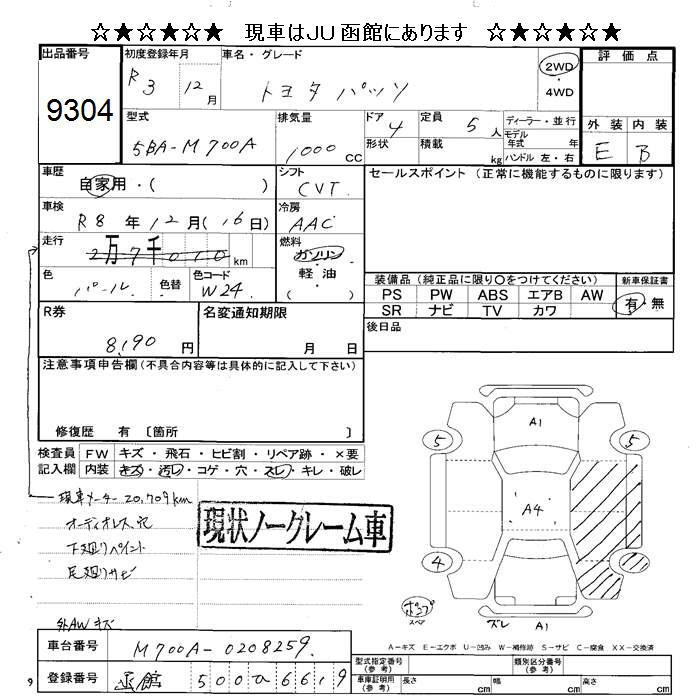 ☆★☆★☆★ 現車はJU函館にあります ☆★☆★☆★
出品番号 9304
初度登録年月 R3 12月
車名・グレード トヨタ パッソ
2WD ・ 4WD
評価点
外装 E 内装 B
型式 5BA-M700A
排気量 1000 CC
ドア 4 形状
定員 5人 積載 kg
ディーラー・並行
モデル年式 年
ハンドル 左・右
車歴 自家用・( )
シフト CVT
セールスポイント(正常に機能するものに限ります)
車検 R8年12月(16日)
冷房 AAC
走行 2万7千010 km
燃料 ガソリン ・ 軽油 ( )
色 パール 色替 色コード W24
装備品(純正品に限り○をつけてください)
PS PW ABS エアB AW
SR ナビ TV カワ
新車保証書 有・無
R券 8,190円
名変通知期限 月 日
後日品
注意事項申告欄(不具合内容等は具体的に記入して下さい)
修復歴 有 〔箇所 〕
検査員記入欄
FW キズ・飛石・ヒビ割・リペア跡・×要
内装 キズ・汚レ・コゲ・穴・スレ・キレ・破レ
現車メーター20,709km
オーディオレス穴
下廻りペイント
足廻りサビ
外AWキズ
現状ノークレーム車
A1
5 5
A4
4
ポンプ スペア
ズレ A1
A−キズ E−エクボ U−凹み W−補修跡 S−サビ C−腐食 XX−交換済
車台番号 M700A-0208259
登録番号 函館 500 ひ 6619
型式指定番号(参考) 類別区分番号(参考)
車庫証明用(参考) 長さ cm 幅 cm 高さ cm
9